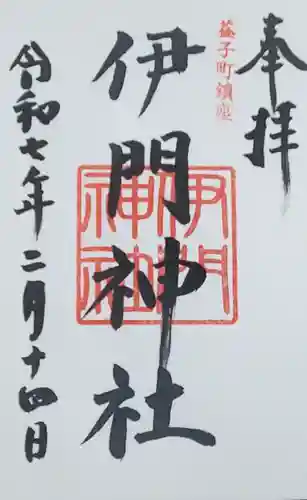 奉拝
益子町鎮座
伊門神社
伊門神社
令和七年二月十四日